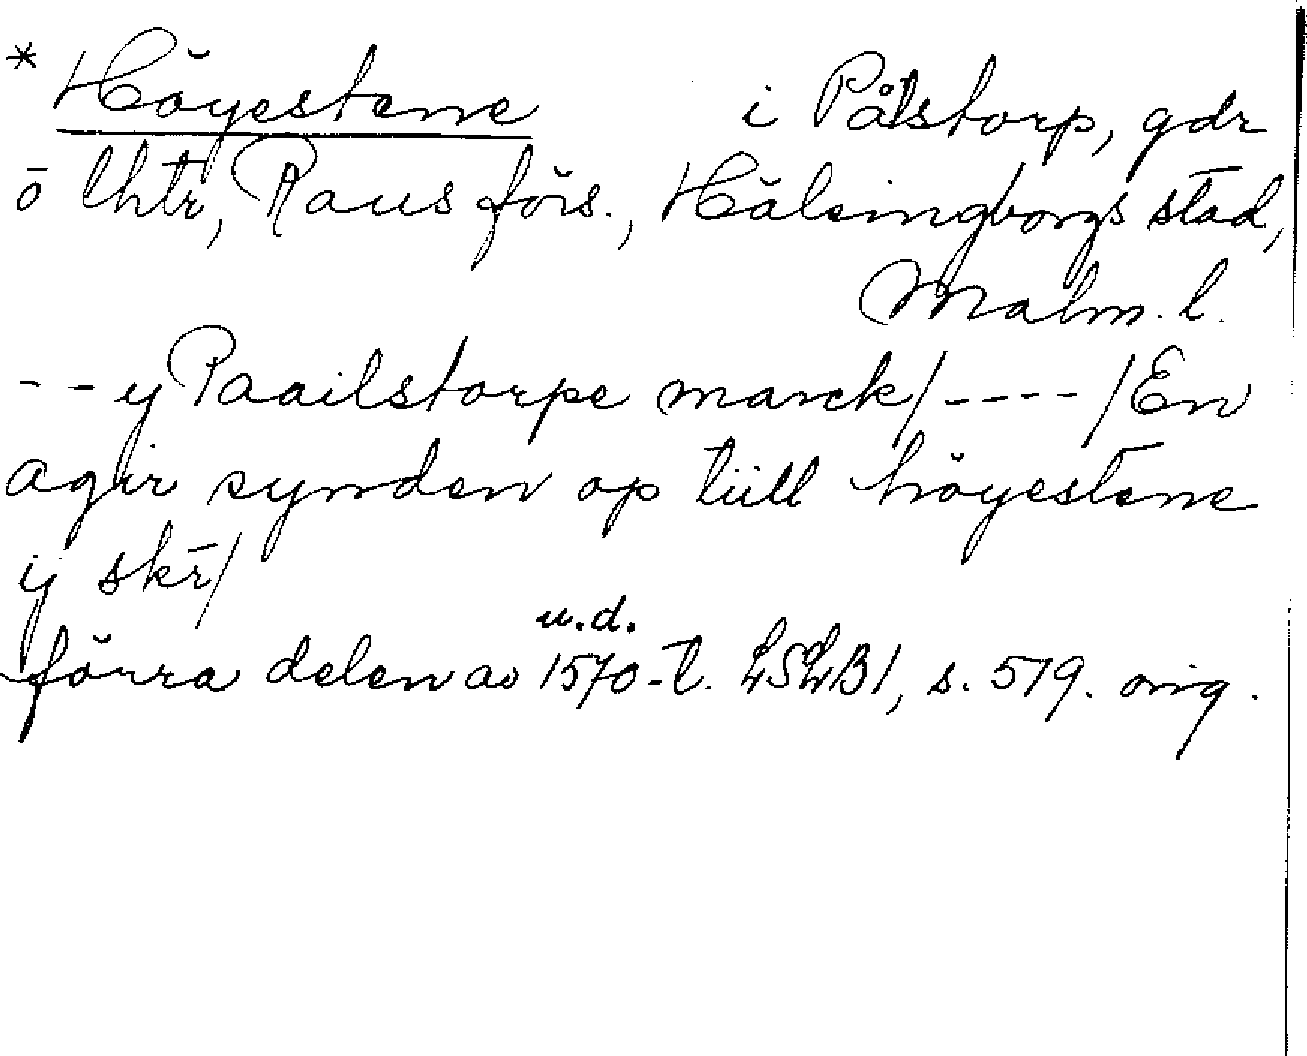 * Höyestene i Pålstorp, gdr
o lhtr, Raus förs., Hälsingborgs stad,
Malm. l.
- - y Paailstorpe marck/ - - - - /En
agir synden op tiill höyestene
y skr/
u.d.
förra delen av 1570-t. LSLB1, s. 519. orig.